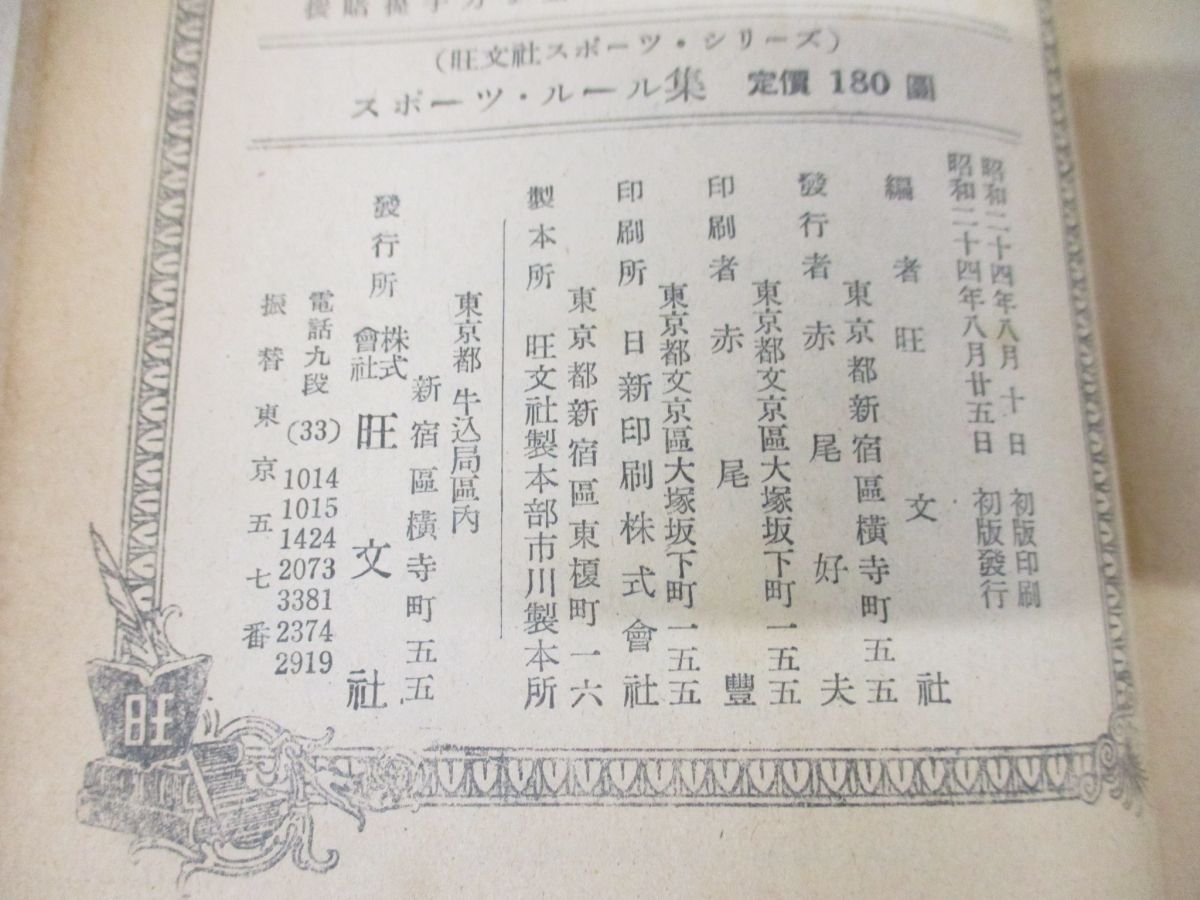 (旺文社スポーツ・シリーズ)
スポーツ・ルール集 定價 180 圓
昭和二十四年八月十日 初版印刷
昭和二十四年八月廿五日 初版發行
編者 旺文社
東京都新宿區横寺町五五
發行者 赤尾好夫
東京都文京區大塚坂下町一五五
印刷者 赤尾豐
東京都文京區大塚坂下町一五五
印刷所 日新印刷株式會社
東京都新宿區東榎町一六
製本所 旺文社製本部市川製本所
東京都牛込局區內
新宿區横寺町五五
發行所 株式會社 旺文社
電話九段(33) 1014
1015
1424
2073
3381
2374
2919
振替東京五七番
旺